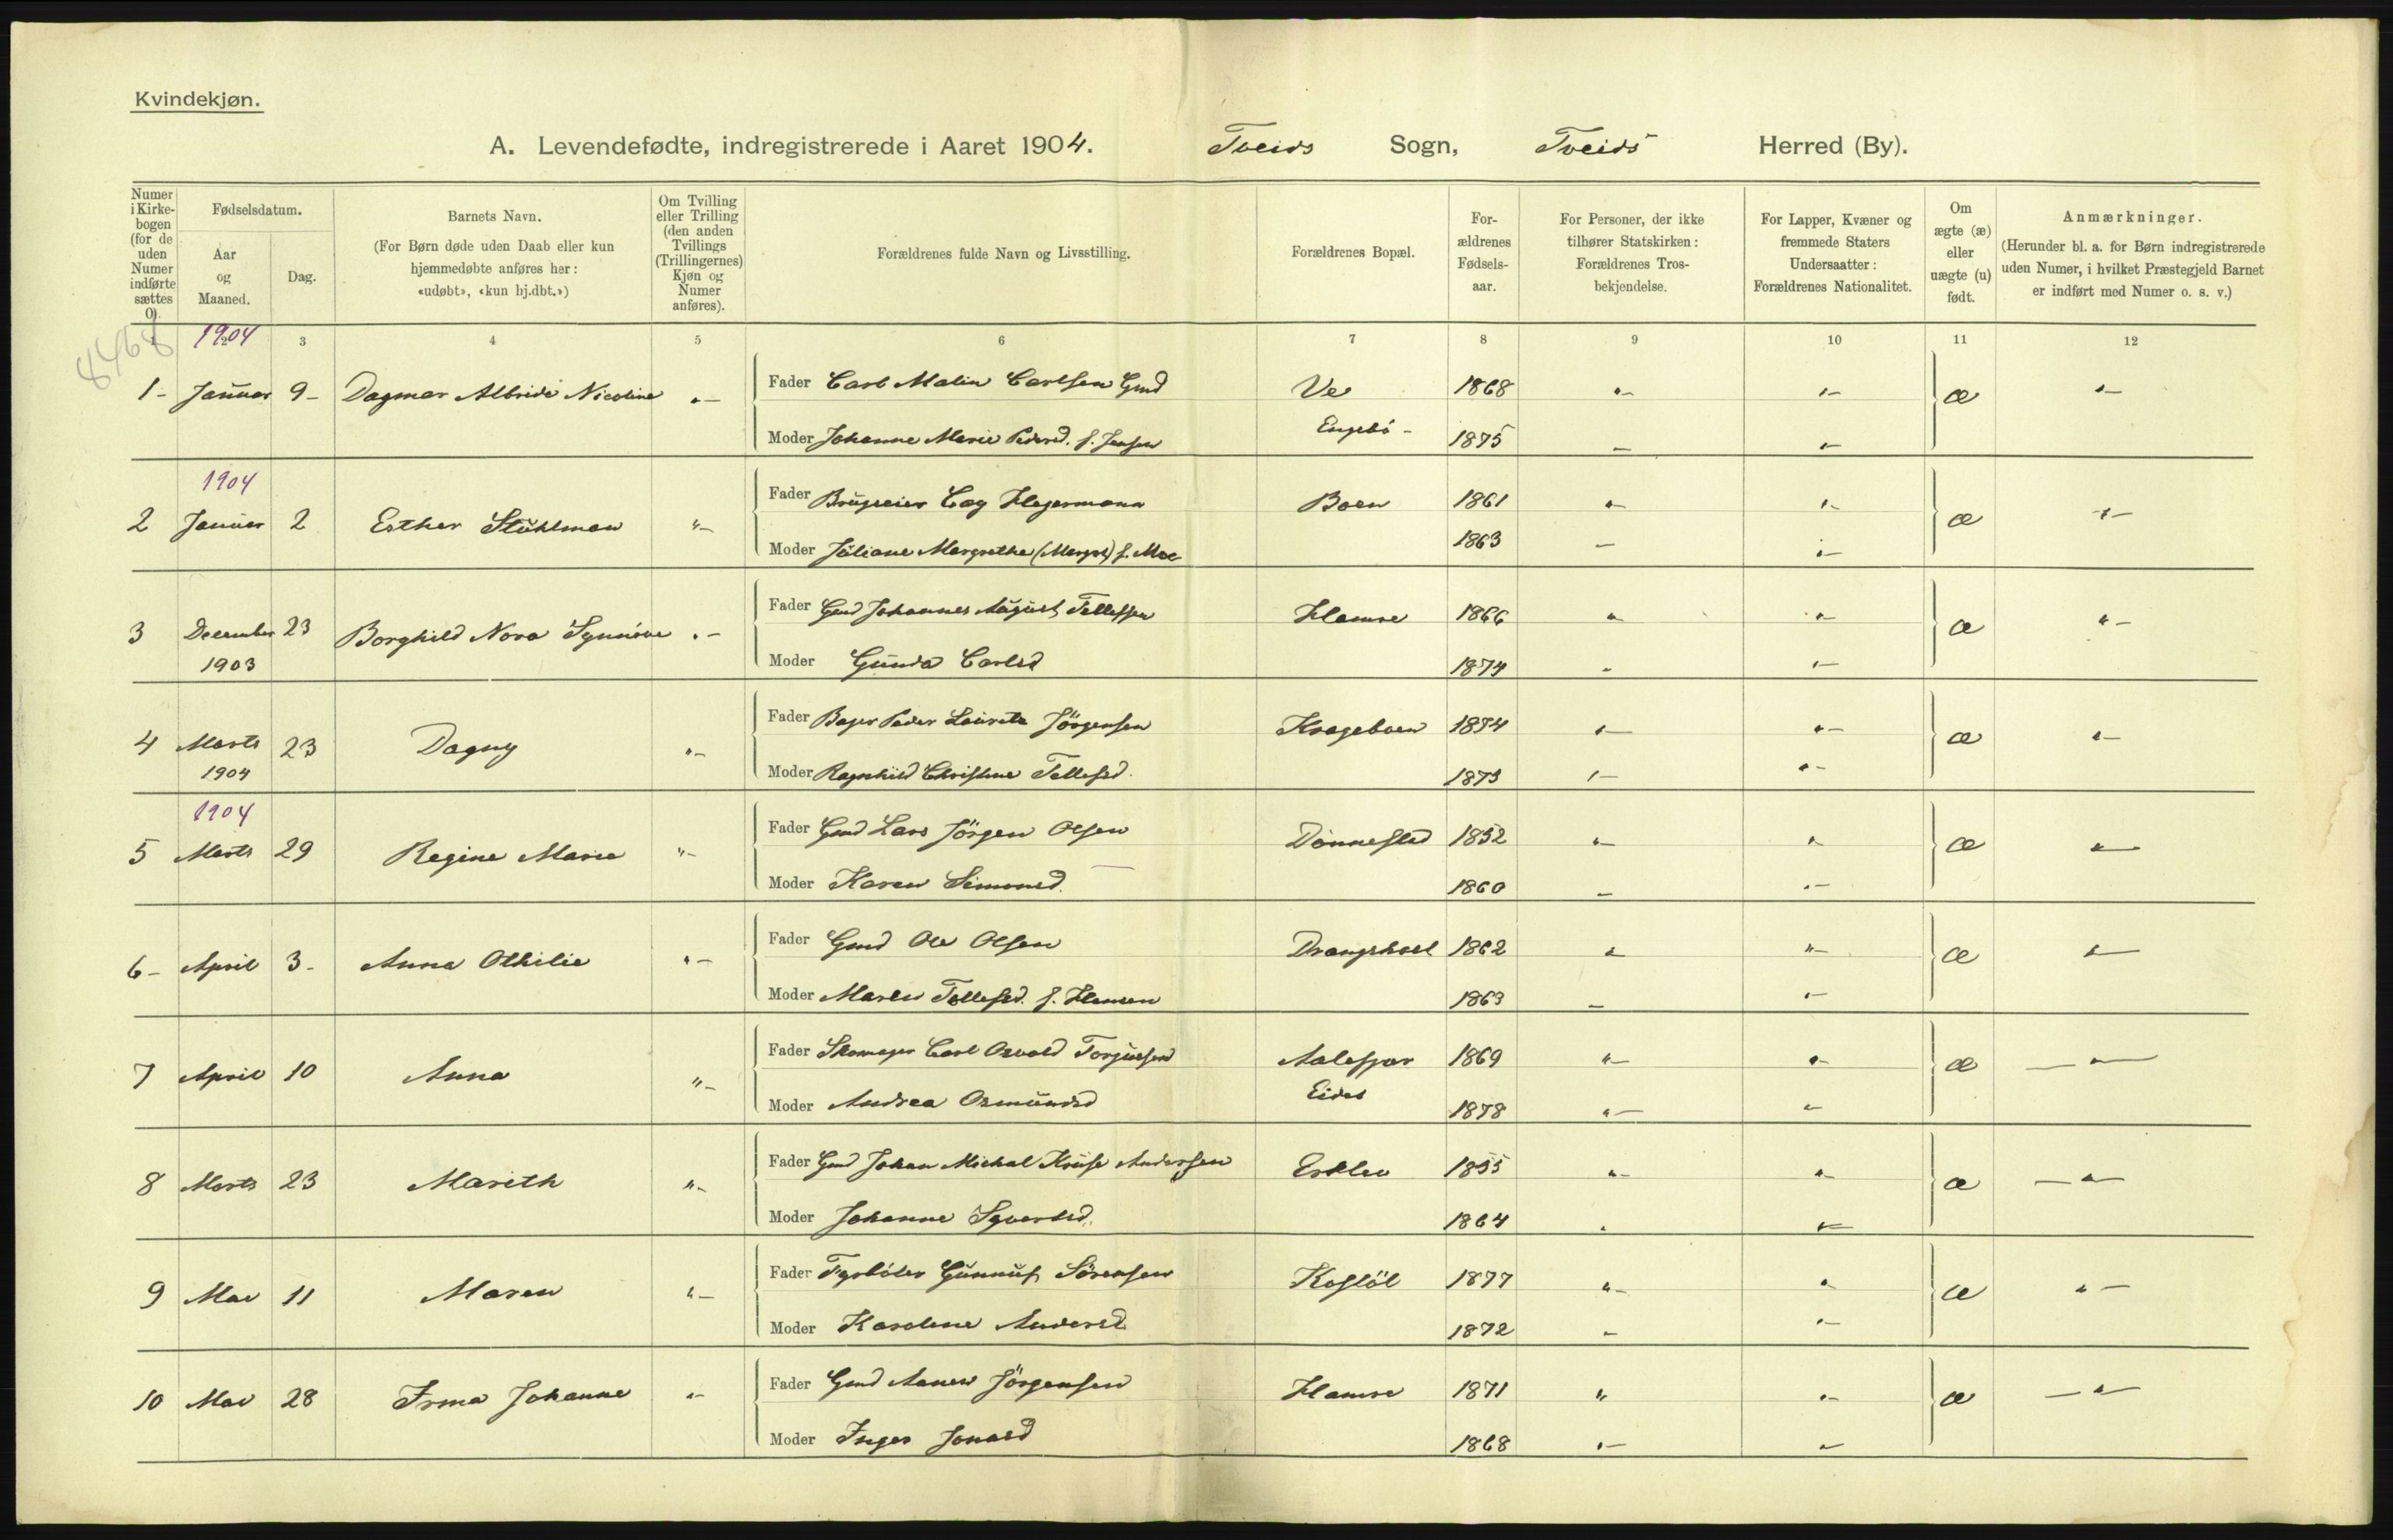 Kvindekjøn.
A. Levendefødte, indregistrerede i Aaret 1904. Tveids Sogn, Tveids Herred (By).
Numer i Kirke-bogen (for de uden Numer indførte sættes 0).
Fødselsdatum.
Aar og Maaned.
Dag.
Barnets Navn.
(For Børn døde uden Daab eller kun hjemmedøbte anføres her: «udøbt», «kun hj.dbt.»)
Om Tvilling eller Trilling (den anden Tvillings (Trillingernes) Kjøn og Numer anføres).
Forældrenes fulde Navn og Livsstilling.
Forældrenes Bopæl.
For-ældrenes Fødsels-aar.
For Personer, der ikke tilhører Statskirken: Forældrenes Tros-bekjendelse.
For Lapper, Kvæner og fremmede Staters Undersaatter: Forældrenes Nationalitet.
Om ægte (æ) eller uægte (u) født.
Anmærkninger.
(Herunder bl. a. for Børn indregistrerede uden Numer, i hvilket Præstegjeld Barnet er indført med Numer o. s. v.)
8468
1904
3 4 5 6 7 8 9 10 11 12
1- Januar 9- Dagmar Albride Nicoline "- Fader Carl Malin Carlsen Gmd Ve 1868 "- "- æ "-
Moder Johanne Marie Pedersd. f. Jensen Engebö- 1875 - "-
1904
2 Januar 2 Esther Stühlman "- Fader Brugseier Cay Hegermann Boen 1861 "- "- æ "-
Moder Juliane Margrethe (Margrt) f. Moe 1863 - "-
3 December 23 Borghild Nora Synnöve "- Fader Gmd Johannes August Tellefsen Hamre 1866 "- "- æ "-
1903 Moder Gunda Carlsd 1874 - "-
4 Marts 23 Dagny "- Fader Bager Peder Lauritz Jörgensen Krageboen 1874 "- "- æ "-
1904 Moder Ragnhild Christine Tellefsd. 1873 "- "-
1904
5 Marts 29 Regine Marie "- Fader Gmd Lars Jörgen Olsen Dönnestad 1852 "- "- æ "-
Moder Karen Simonsd. 1860 - "-
6- April 3- Anna Othilie "- Fader Gmd Ole Olsen Drangsholt 1862 "- "- æ "-
Moder Maren Tellefsd. f. Hansen 1863 - "-
7 April 10 Anna "- Fader Skomager Carl Osvald Torjussen Aalefjær 1869 "- "- æ -"-
Moder Andrea Osmundsd Eidet 1878 "- "-
8 Marts 23 Marith "- Fader Gmd Johan Michal Kruse Andersen Erklev 1855 "- "- æ -"-
Moder Johanne Syvertsd. 1864 " "-
9 Mai 11 Maren "- Fader Fyrböter Gunnuf Sörensen Kostöl 1877 "- "- æ "-
Moder Karolene Andersd 1872 - "-
10 Mai 28 Irma Johanne "- Fader Gmd Aanen Jörgensen Hamre 1871 " "- æ -"-
Moder Inger Jonasd 1868 "- "-